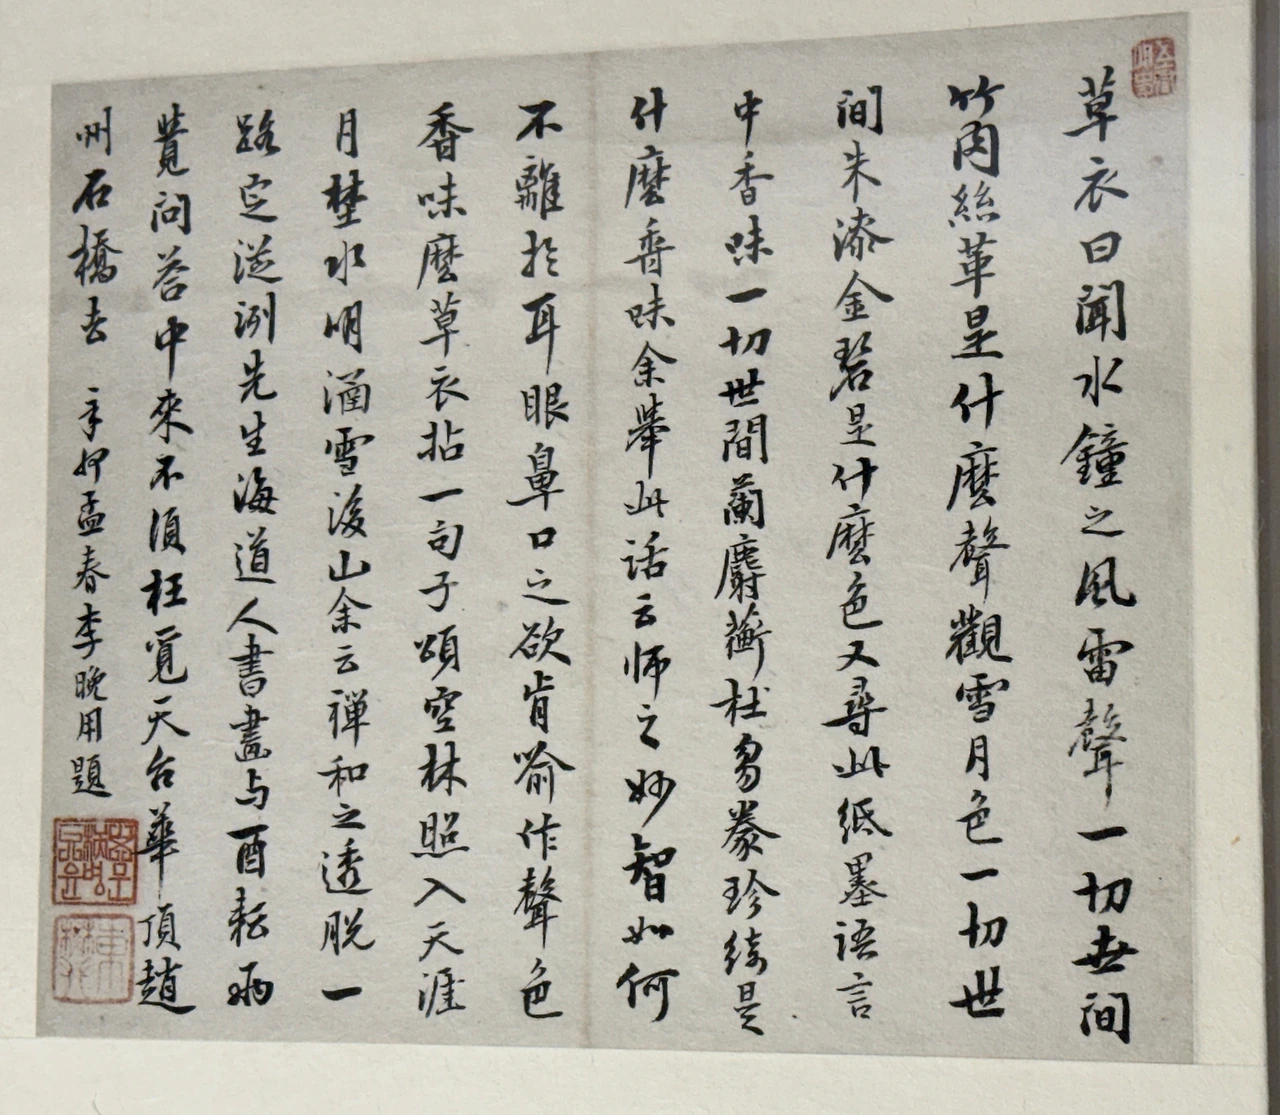 草衣曰聞水鐘之風雷聲一切世間
竹肉絲革是什麼聲觀雪月色一切世
間朱漆金碧是什麼色又尋此紙墨語言
中香味一切世間蘭麝蘅杜芻豢珍綺是
什麼香味余舉此話云師之妙智如何
不離於耳眼鼻口之欲肯喻作聲色
香味麼草衣拈一句子頌空林照入天涯
月埜水明涵雪後山余云禅和之透脫一
路定從洌先生海道人書畫与酉耘兩
覺問答中來不須枉覓天台華頂趙
州石橋去 辛卯孟春李晚用題